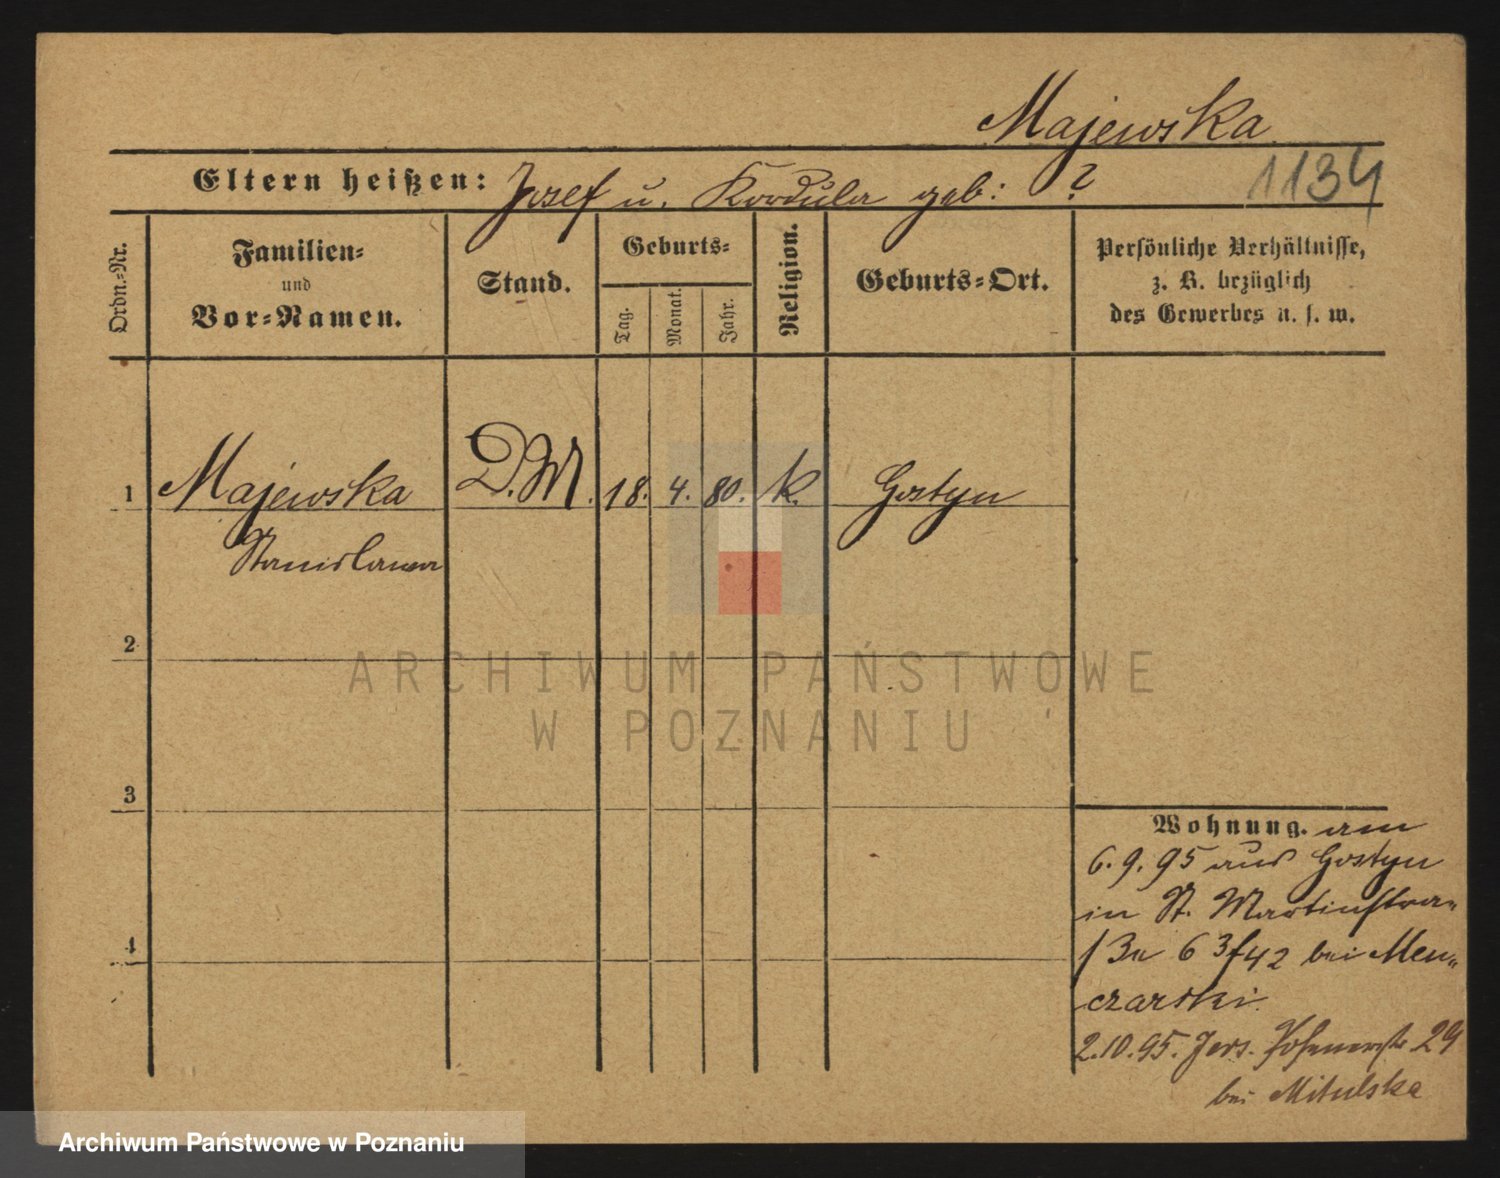 Majewska
Eltern heißen: Josef u. Kordula geb: ?
1134
Ordn.-Nr.
Familien-
und
Vor-Namen.
Stand.
Geburts-
Tag.
Monat.
Jahr.
Religion.
Geburts-Ort.
Persönliche Verhältnisse,
z. B. bezüglich
des Gewerbes u. s. w.
1 Majewska D.M. 18. 4. 80. k. Gostyn
Stanislawa
2
ARCHIWUM PAŃSTWOWE
W POZNANIU
3
Wohnung. am
6. 9. 95 aus Gostyn
in St. Martinstra-
bei Men-
czarski.
2.10.95. Jers. 29
bei Mitulska
4
Archiwum Państwowe w Poznaniu